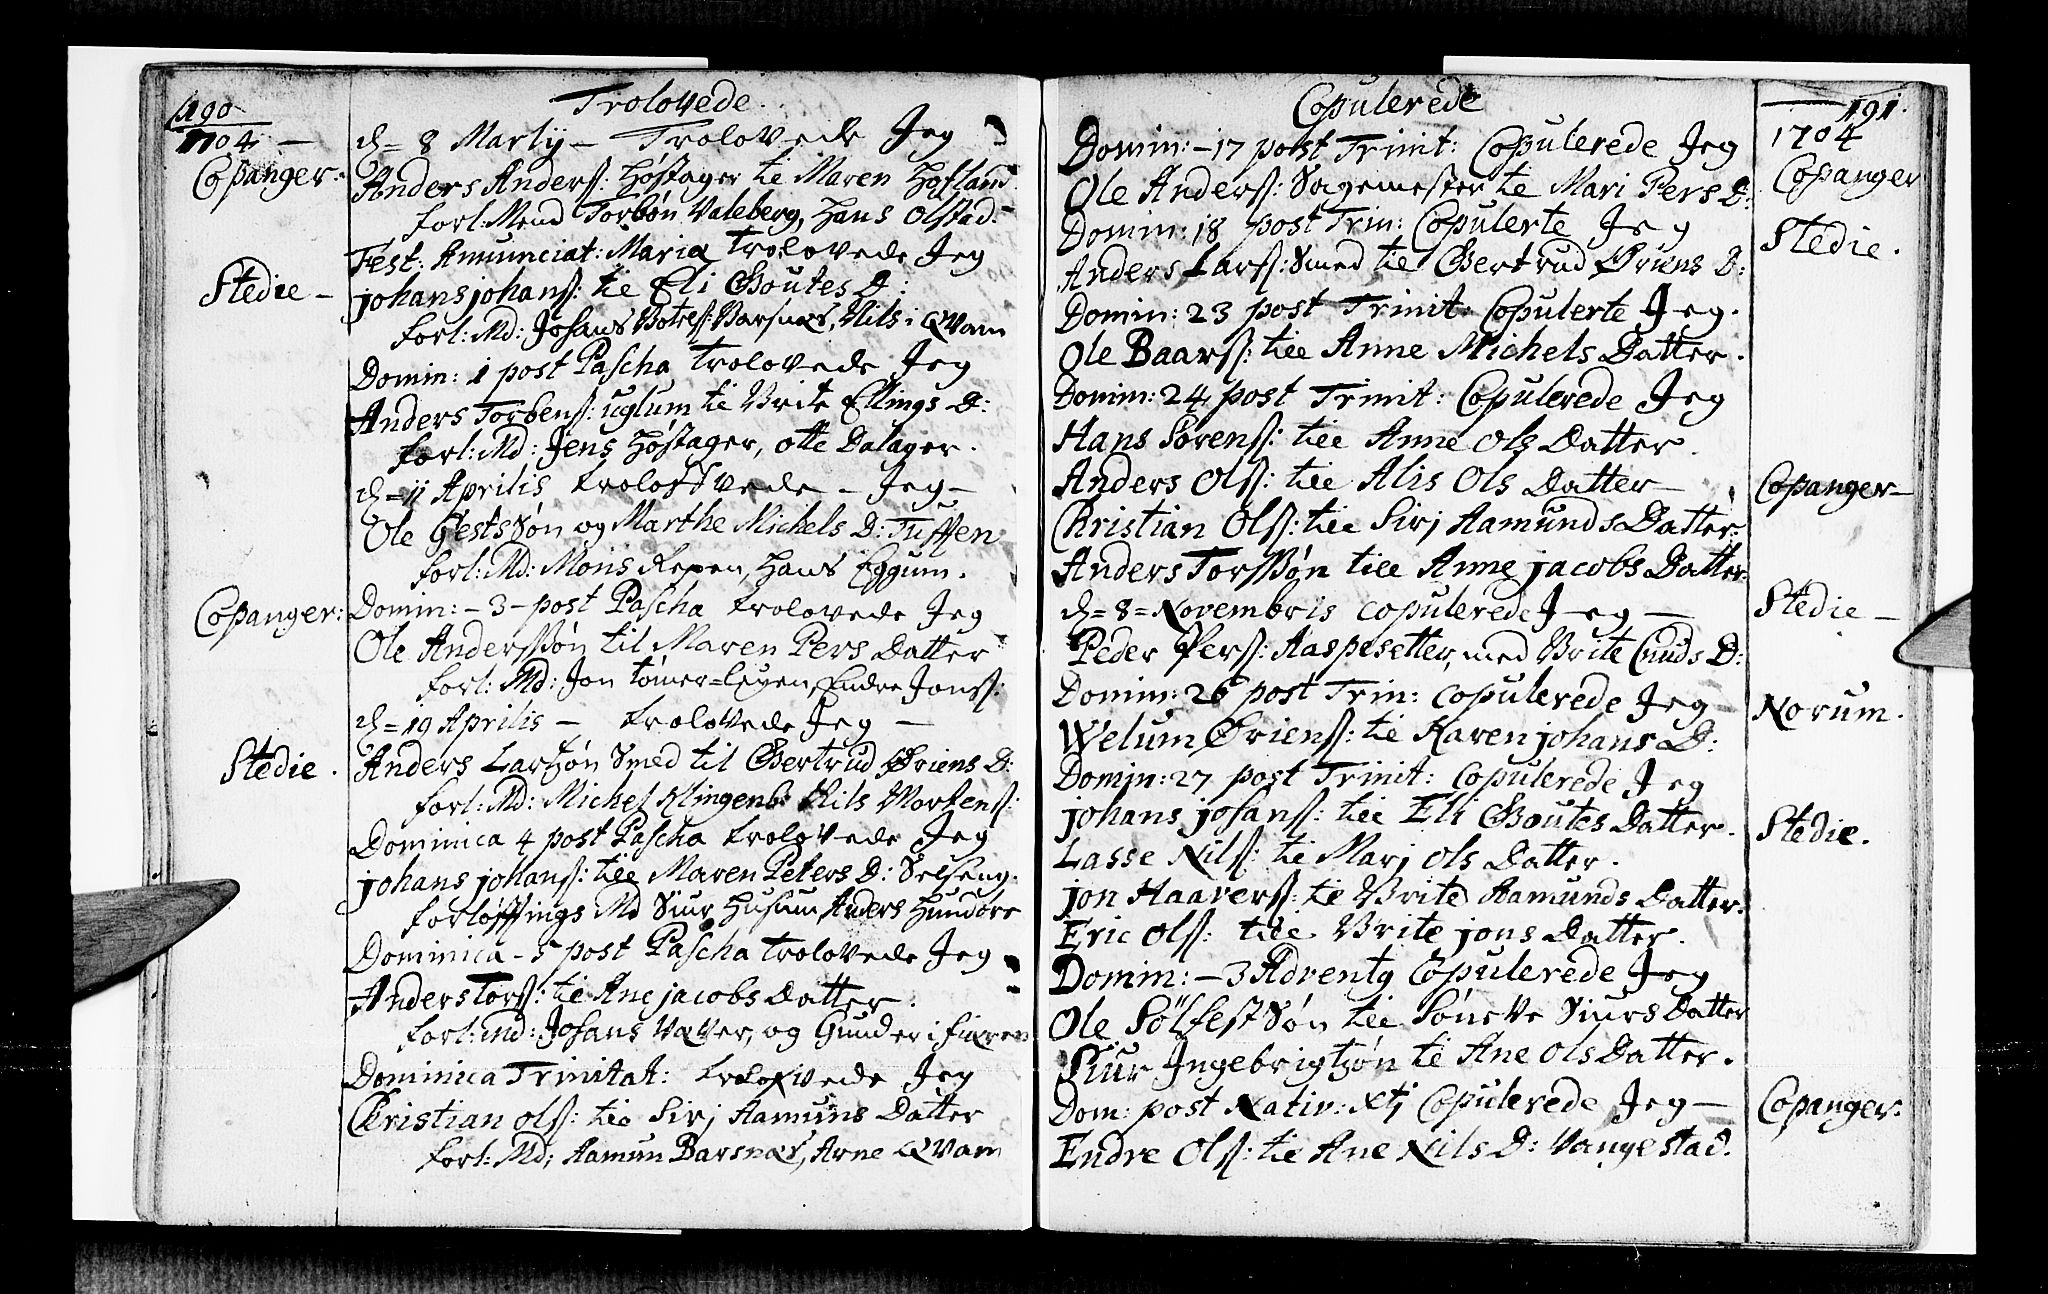 190
Trolovede.
1704 —
d= 8 Martij — Trolovede Jeg
Copanger:
Anders Anders: Høstager til Maren Hofland
forl: Mend Torbön Valeberg, Hans Olstad:
Fest: Annunciat: Maria trolovede Jeg
Stedie —
johans johans: til Eli Goutes D:
forl: Md: Johans Botols: Barsnæs, Nils i Qvam
Domin: 1 post Pascha trolovede Jeg
Anders Torbens: uglum til Brite Ellings D:
forl: Md: Jens Høstager, Otte Dalager.
d= 11 Aprilis trolofvede — Jeg —
Ole Gests Søn og Marthe Michels D: Tufften
forl: Md: Mons Repen, Hans Eggum.
Copanger:
Domin: — 3 — post Pascha trolovede Jeg
Ole Andersøn til Maren Pers Datter
forl: Md: Jon tømer=, Endre Jons:
d= 19 Aprilis — trolovede Jeg —
Stedie.
Anders Larsøn Smed til Gertrud Øriens D:
forl: Md: Michel Klingenb: Nils Mortens:
Dominica 4 post Pascha trolovede Jeg
johans johans: till Maren Peters D: Selseng.
forløffnings Md Siur Husum Anders Hundere
Dominica — 5 post Pascha trolovede Jeg
Anders Tors: til Ane jacobs Datter.
forl: md: Johans Væver, og Gunder i fiæren
Dominica Trinitat: trolovede Jeg
Christian Ols: till Sirj Aamuns Datter
forl: Md; Aamun Barsnæs, Arne Qvam
Copulerede
191.
Domin: — 17 post Trinit: Copulerede Jeg
1704
Ole Anders: Sagemester til Mari Pers D:
Copanger
Domin: 18 post Trin: Copulerte Jeg
Stedie.
Anders Lars: Smed till Gertrud Øriens D:
Domin: 23 post Trinit: Copulerte Jeg.
Ole Baars: till Anne Michels Datter.
Domin: 24 post Trinit: Copulerede Jeg
Hans Sörens: till Anne Ols Datter.
Anders Ols: till Alis Ols Datter —
Copanger —
Christian Ols: till Sirj Aamunds Datter:
Anders Torssøn till Anne jacobs Datter.
d= 8= Novembris copulerede Jeg —
Stedie —
Peder Pers: Aaspesetter, med Brite Cnuds D:
Domin: 26 post Trin: copulerede Jeg
Norum.
Welum Øriens: til Karen johans D:
Domin: 27 post Trinit: copulerede Jeg
johans johans: till Eli Goutes Datter.
Stedie.
Lasse Nils: til Marj Ols Datter.
jon Haavers: til Brite Aamunds Datter.
Eric Ols: till Brite jons Datter.
Domin: — 3 Adventy Copulerede Jeg
Ole Sölfest Søn till Sóneve Siurs Datter
Siur Ingebrigtsøn til Ane Ols Datter.
Dom: post Nativ: Xtj Copulerede Jeg —
Copanger:
Endre Ols: til Ane Nils D: Vangestad.